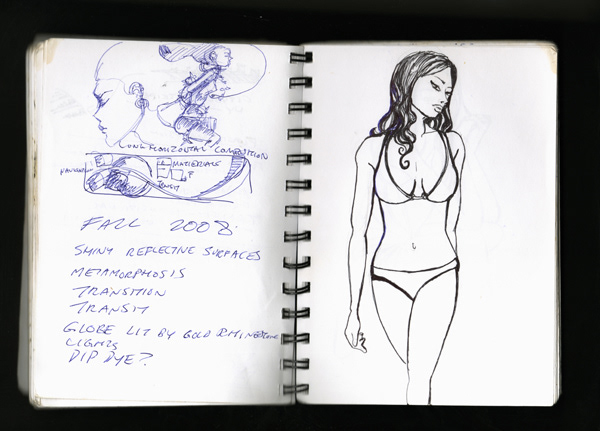 LONG HORIZONTAL COMPOSITION
MATERIALS
FALL 2008.
SHINY REFLECTIVE SURFACES
METAMORPHOSIS
TRANSITION
TRANSIT
GLOBE LIT BY GOLD RHINESTONE
LIGHTS
DIP DYE?